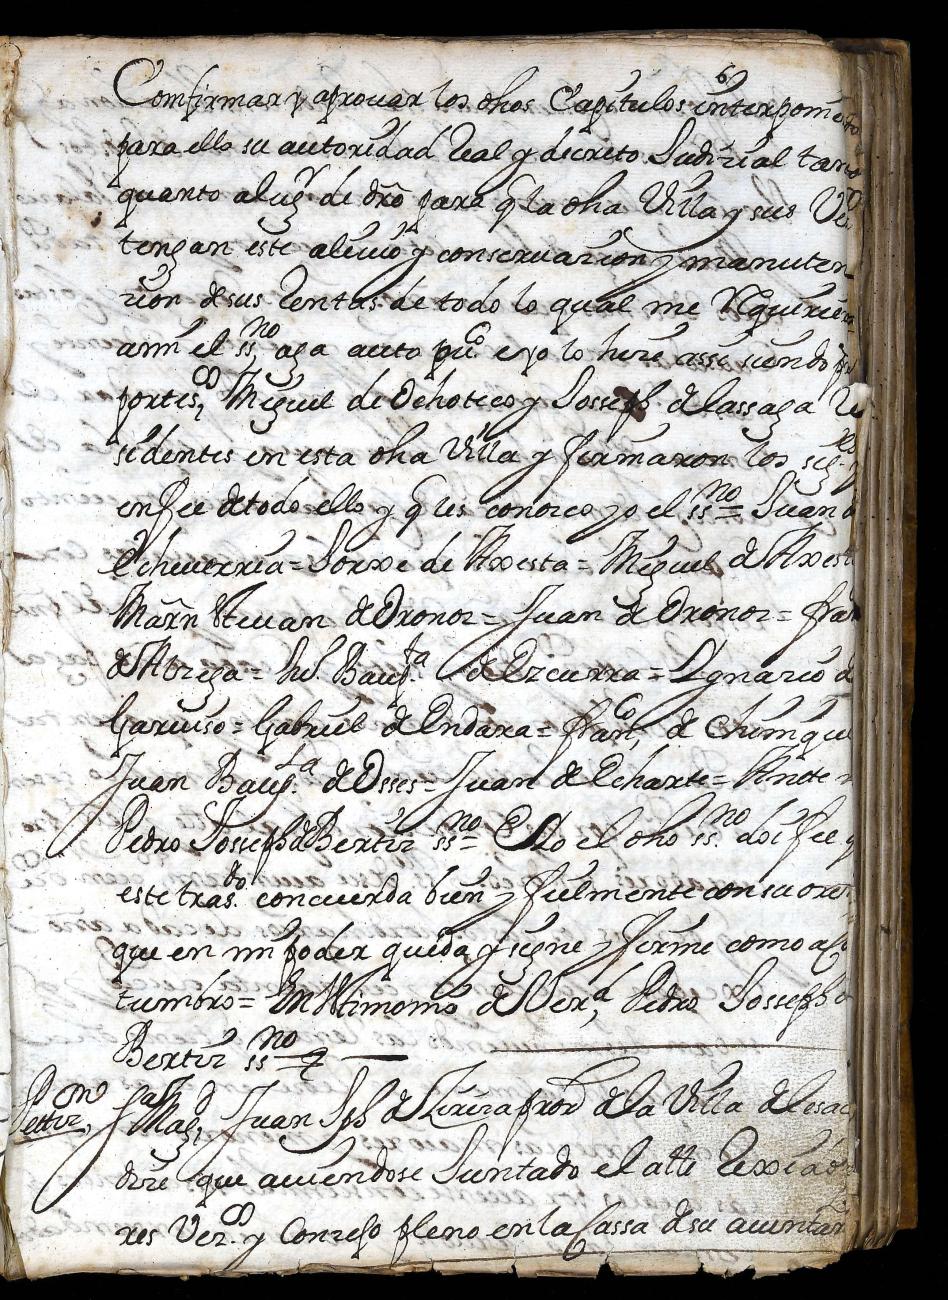 Comfirmar y aprouar los dhos Capitulos interpom
para ello su autoridad Real y decreto Judizial tan
quanto aluga^r de dr̃o para q̃ la dha Villa y sus Ve
tengan este aleuio y conseruazion y manuten
zion de sus Rentas. de todo lo qual me Requirier
ami el ss^no aga auto pu^co e yo lo hize assi siendo
por tes^os Miguel de Ochoteco y Josseph de lassaga Re
sidentes en esta dha Villa y firmaron los sig^tes
en fee de todo ello y q̃ les conozco yo el ss^no = Juan d
Echeuerria = Jorxe de Axesta = Miguel de Axest
Mar̃n Esteuan de Oronoz = Juan de Oronoz = fran
de Abzega = Ju. Baup^ta de Ezcurra = Ygnazio d
Garuiso = Gabriel de Endara = fran^co de Chimque
Juan Baup^ta de Osses = Juan de Echarte = Ante m
Pedro Josseph de Bertiz ss^no = Yo el dho ss^no doi fee q
este tras^do concuerda bien y fielmente con su orig
que en mi poder queda y signe y firme como acos
tumbro = En Testimonio de Ver^d, Pedro Josseph d
Bertiz ss^no
Peti^on
S. Mag^d, Juan Jph de Zirizia pro^r de la Villa de lesac
dize que auiendose Juntado el alte Rexido
res Vez^os y Conzejo pleno en la Cassa de su aiuntam